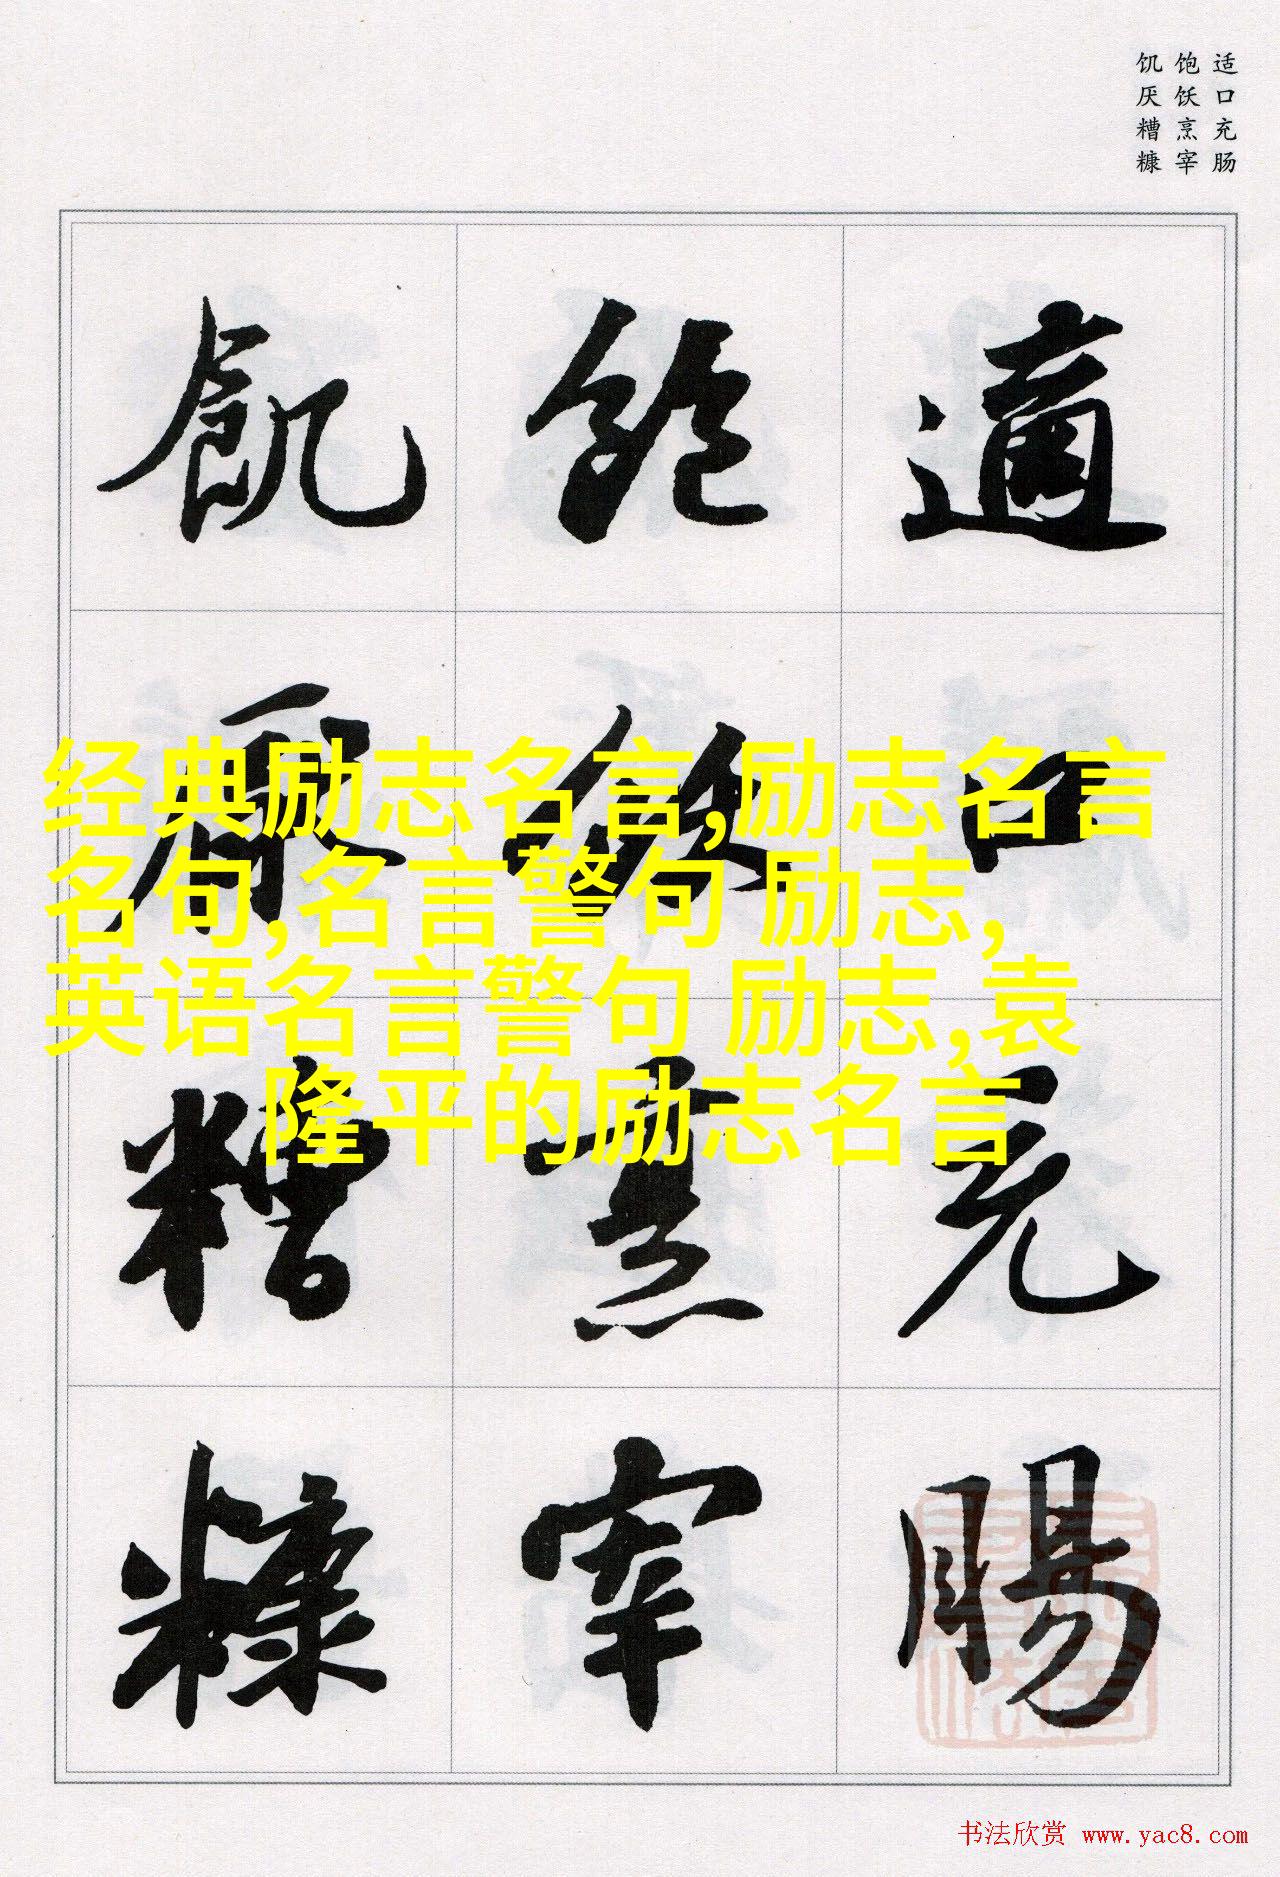 适口充肠
饱饫烹宰
饥厌糟糠
適口充腸
飽飫烹宰
飢厭糟糠
经典励志名言,励志名言
名句,名言警句 励志,
英语名言警句 励志,袁
隆平的励志名言
书法欣赏 www.yac8.com